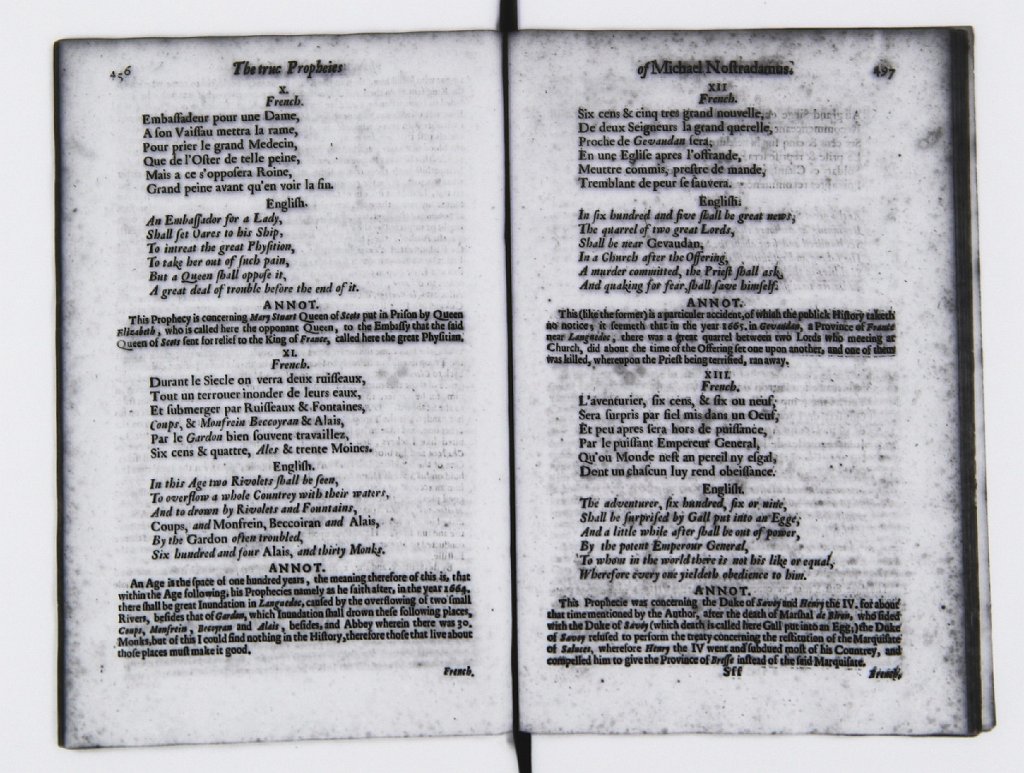 456
The true Propheies
X.
French.
Embaſſadeur pour une Dame,
A ſon Vaiſſau mettra la rame,
Pour prier le grand Medecin,
Que de l'Oſter de telle peine,
Mais a ce s'oppoſera Roine,
Grand peine avant qu'en voir la fin.
Engliſh.
An Embaſſador for a Lady,
Shall ſet Oares to his Ship,
To intreat the great Phyſition,
To take her out of ſuch pain,
But a Queen ſhall oppoſe it,
A great deal of trouble before the end of it.
ANNOT.
This Prophecy is concerning Mary Stuart Queen of Scots put in Priſon by Queen
Elizabeth, who is called here the opponant Queen, to the Embaſſy that the ſaid
Queen of Scots ſent for relief to the King of France, called here the great Phyſitian.
XI.
French.
Durant le Siecle on verra deux ruiſſeaux,
Tout un terrouer inonder de leurs eaux,
Et ſubmerger par Ruiſſeaux & Fontaines,
Coups, & Monfrein Beccoyran & Alais,
Par le Gardon bien ſouvent travaillez,
Six cens & quattre, Ales & trente Moines.
Engliſh.
In this Age two Rivolets ſhall be ſeen,
To overflow a whole Countrey with their waters,
And to drown by Rivolets and Fountains,
Coups, and Monfrein, Beccoiran and Alais,
By the Gardon often troubled,
Six hundred and four Alais, and thirty Monks.
ANNOT.
An Age is the ſpace of one hundred years, the meaning therefore of this is, that
within the Age following, his Prophecies namely as he ſaith after, in the year 1664.
there ſhall be great Inundation in Languedoc, cauſed by the overflowing of two ſmall
Rivers, beſides that of Gardon, which Inundation ſhall drown theſe following places,
Coups, Monfrein, Becoyran and Alais, beſides, and Abbey wherein there was 30.
Monks, but of this I could find nothing in the Hiſtory, therefore thoſe that live about
thoſe places muſt make it good.
French.
of Michael Noſtradamus.
497
XII
French.
Six cens & cinq tres grand nouvelle,
De deux Seigneurs la grand querelle,
Proche de Gevaudan ſera,
En une Egliſe apres l'offrande,
Meurtre commis, preſtre de mande,
Tremblant de peur ſe ſauvera.
Engliſh.
In ſix hundred and five ſhall be great news,
The quarrel of two great Lords,
Shall be near Gevaudan,
In a Church after the Offering,
A murder committed, the Prieſt ſhall ask,
And quaking for fear ſhall ſave himſelf.
ANNOT.
This (like the former) is a particular accident, of which the publick Hiſtory taketh
no notice; it ſeemeth that in the year 1605. in Gevaudan, a Province of France
near Languedoc, there was a great quarrel between two Lords who meeting at
Church, did about the time of the Offering ſet one upon another, and one of them
was killed, whereupon the Prieſt being terrified, ran away.
XIII.
French.
L'aventurier, ſix cens, & ſix ou neuf,
Sera ſurpris par fiel mis dans un Oeuf,
Et peu apres ſera hors de puiſſance,
Par le puiſſant Empereur General,
Qu'ou Monde neſt an pereil ny eſgal,
Dont un chaſcun luy rend obeiſſance.
Engliſh.
The adventurer, ſix hundred, ſix or nine,
Shall be ſurpriſed by Gall put into an Egge,
And a little while after ſhall be out of power,
By the potent Emperour General,
To whom in the world there is not his like or equal,
Wherefore every one yieldeth obedience to him.
ANNOT.
This Prophecie was concerning the Duke of Savoy and Henry the IV. for about
that time mentioned by the Author, after the death of Marſhal de Biron, who ſided
with the Duke of Savoy (which death is called here Gall put into an Egg,) the Duke
of Savoy refuſed to perform the treaty concerning the reſtitution of the Marquiſate
of Saluces, wherefore Henry the IV went and ſubdued moſt of his Countrey, and
compelled him to give the Province of Breſſe inſtead of the ſaid Marquiſate.
Sff
French,